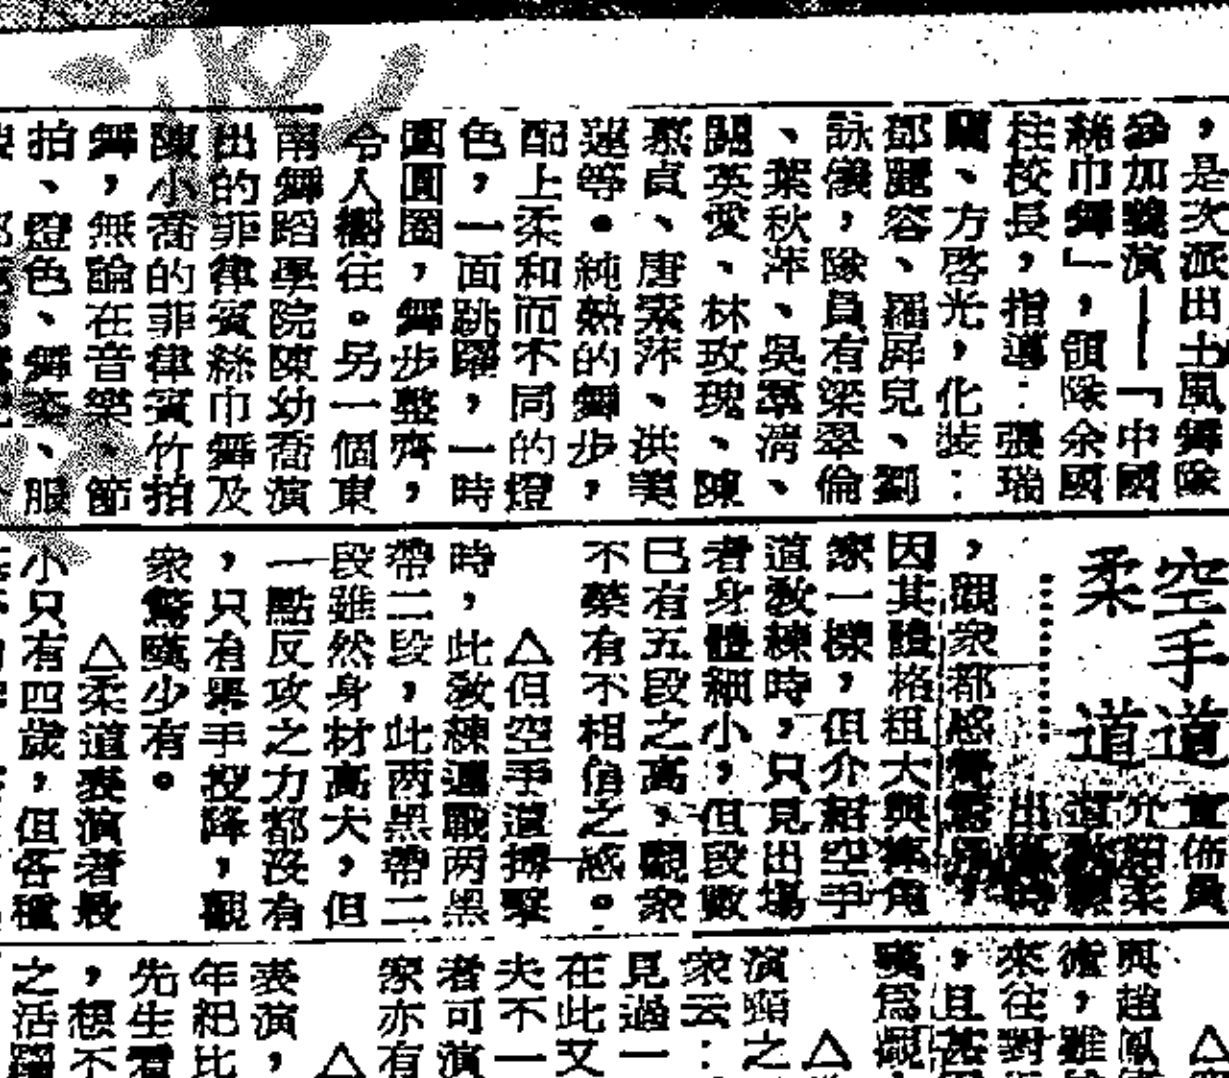 ，是次派出土風舞隊
參加義演——「中國
絲巾舞」，領隊余國
柱校長，指導：張瑞
蘭、方啓光，化裝：
鄧麗容、羅屏兒、劉
詠儀，隊員有梁翠倫
、葉秋萍、吳翠清、
關英愛、林玫瑰、陳
燕貞、唐素萍、洪美
蓮等。純熟的舞步，
配上柔和而不同的燈
色，一面跳躍，一時
圍圓圈，舞步整齊，
令人嚮往。另一個東
南舞蹈學院陳幼喬演
出的菲律賓絲巾舞及
陳小喬的菲律賓竹拍
舞，無論在音樂、節
拍、燈色、舞姿、服
空手道
柔道
宣佈與
介紹柔
道教練
出場時
，觀衆都感覺
因其體格粗大與
家一樣，但介紹空手
道敎練時，只見出場
者身體細小，但段數
已有五段之高，觀衆
不禁有不相信之感。
△但空手道搏擊
時，此敎練遇戰两黑
帶二段，此两黑帶二
段雖然身材高大，但
一點反攻之力都沒有
，只有舉手投降，觀
衆驚嘆少有。
△柔道表演者最
小只有四歲，但各種
與趙鳳
術，雖
來往對
，且甚
嘆爲觀
△
演頭之
衆云：
見過一
在此又
夫不一
者可演
家亦有
△
表演，
年紀比
先生看
，想不
之活躍